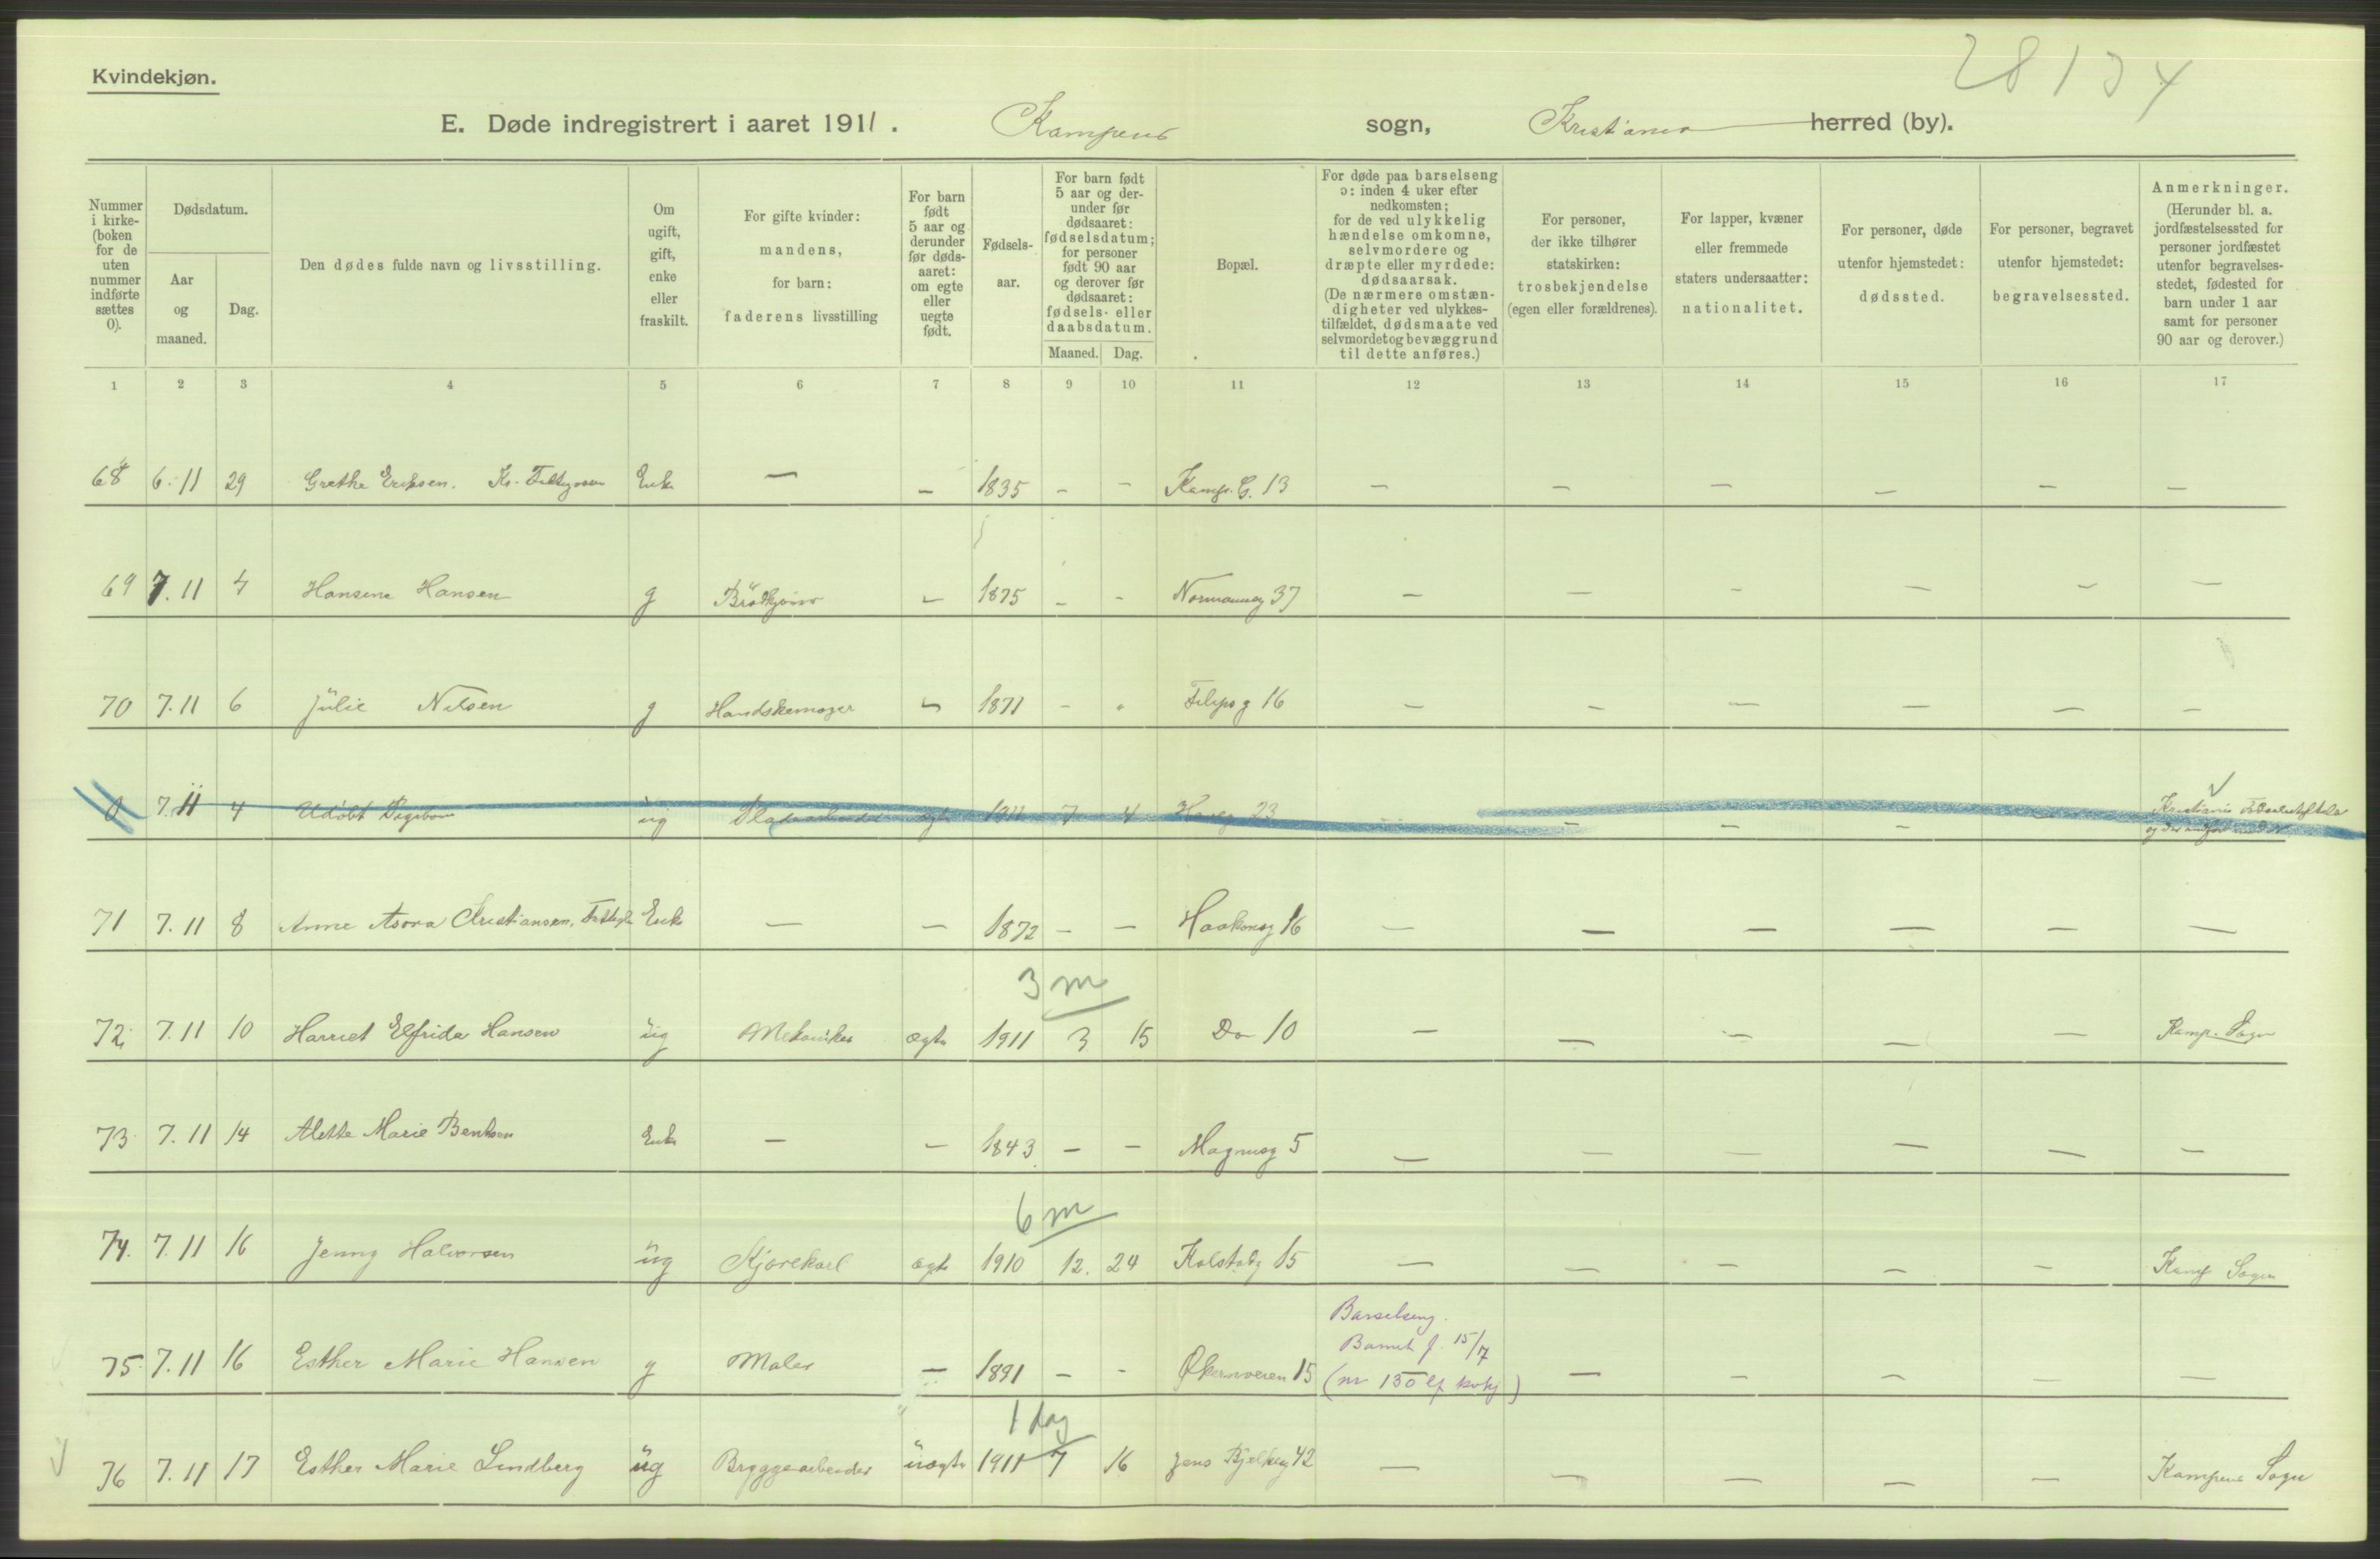 28134
Kvindekjøn.
E. Døde indregistrert i aaret 1911. Kampens sogn, Kristiania herred (by).
Nummer i kirke-(boken for de uten nummer indførte sættes 0).
Dødsdatum.
Aar og maaned.
Dag.
Den dødes fulde navn og livsstilling.
Om ugift, gift, enke eller fraskilt.
For gifte kvinder: mandens, for barn: faderens livsstilling
For barn født 5 aar og derunder før døds-aaret: om egte eller uegte født.
Fødsels-aar.
For barn født 5 aar og der-under før dødsaaret: fødselsdatum; for personer født 90 aar og derover før dødsaaret: fødsels- eller daabsdatum.
Maaned. Dag.
Bopæl.
For døde paa barselseng ɔ: inden 4 uker efter nedkomsten; for de ved ulykkelig hændelse omkomne, selvmordere og dræpte eller myrdede: dødsaarsak. (De nærmere omstæn-digheter ved ulykkes-tilfældet, dødsmaate ved selvmordet og bevæggrund til dette anføres.)
For personer, der ikke tilhører statskirken: trosbekjendelse (egen eller forældrenes).
For lapper, kvæner eller fremmede staters undersaatter: nationalitet.
For personer, døde utenfor hjemstedet: dødssted.
For personer, begravet utenfor hjemstedet: begravelsessted.
Anmerkninger. (Herunder bl. a. jordfæstelsessted for personer jordfæstet utenfor begravelses-stedet, fødested for barn under 1 aar samt for personer 90 aar og derover.)
1 2 3 4 5 6 7 8 9 10 11 12 13 14 15 16 17
68 6.11 29 Grethe Eriksen. Enke — — 1835 — — Kamp. G. 13 — — — — — —
69 7.11 4 Hansine Hansen g — 1875 — — Normanng 37 — — — — — —
70 7.11 6 Julie Nilsen g Handskemager — 1871 — — Filipsg 16 — — — — — —
0 7.11 4 Udøbt Pigebarn ug 1911 7 4 23 — — — — — Kristiania
71 7.11 8 Anne Asora Christiansen, Enke — — 1872 — — Haakonsg 16 — — — — — —
3 m
72 7.11 10 Harriet Elfrida Hansen ug Mekaniker ægte 1911 3 15 Do 10 — — — — — Kamp. Sogn
73 7.11 14 Alette Marie Bentsen Enke — — 1843 — — Magnusg 5 — — — — — —
6 m
74. 7.11 16 Jenny Halvorsen ug Kjørekarl ægte 1910 12. 24 Kolstadg 15 — — — — — Kamp Sogn
Barselseng.
Barnet f. 15/7
75 7.11 16 Esther Marie Hansen g Maler — 1891 — — Økernveien 15 (nr 150 kvkj) — — — — —
1 dag
76 7.11 17 Esther Marie Lindberg ug Bryggearbeider uægte 1911 7 16 Jens Bjelkesg 42 — — — — — Kampens Sogn